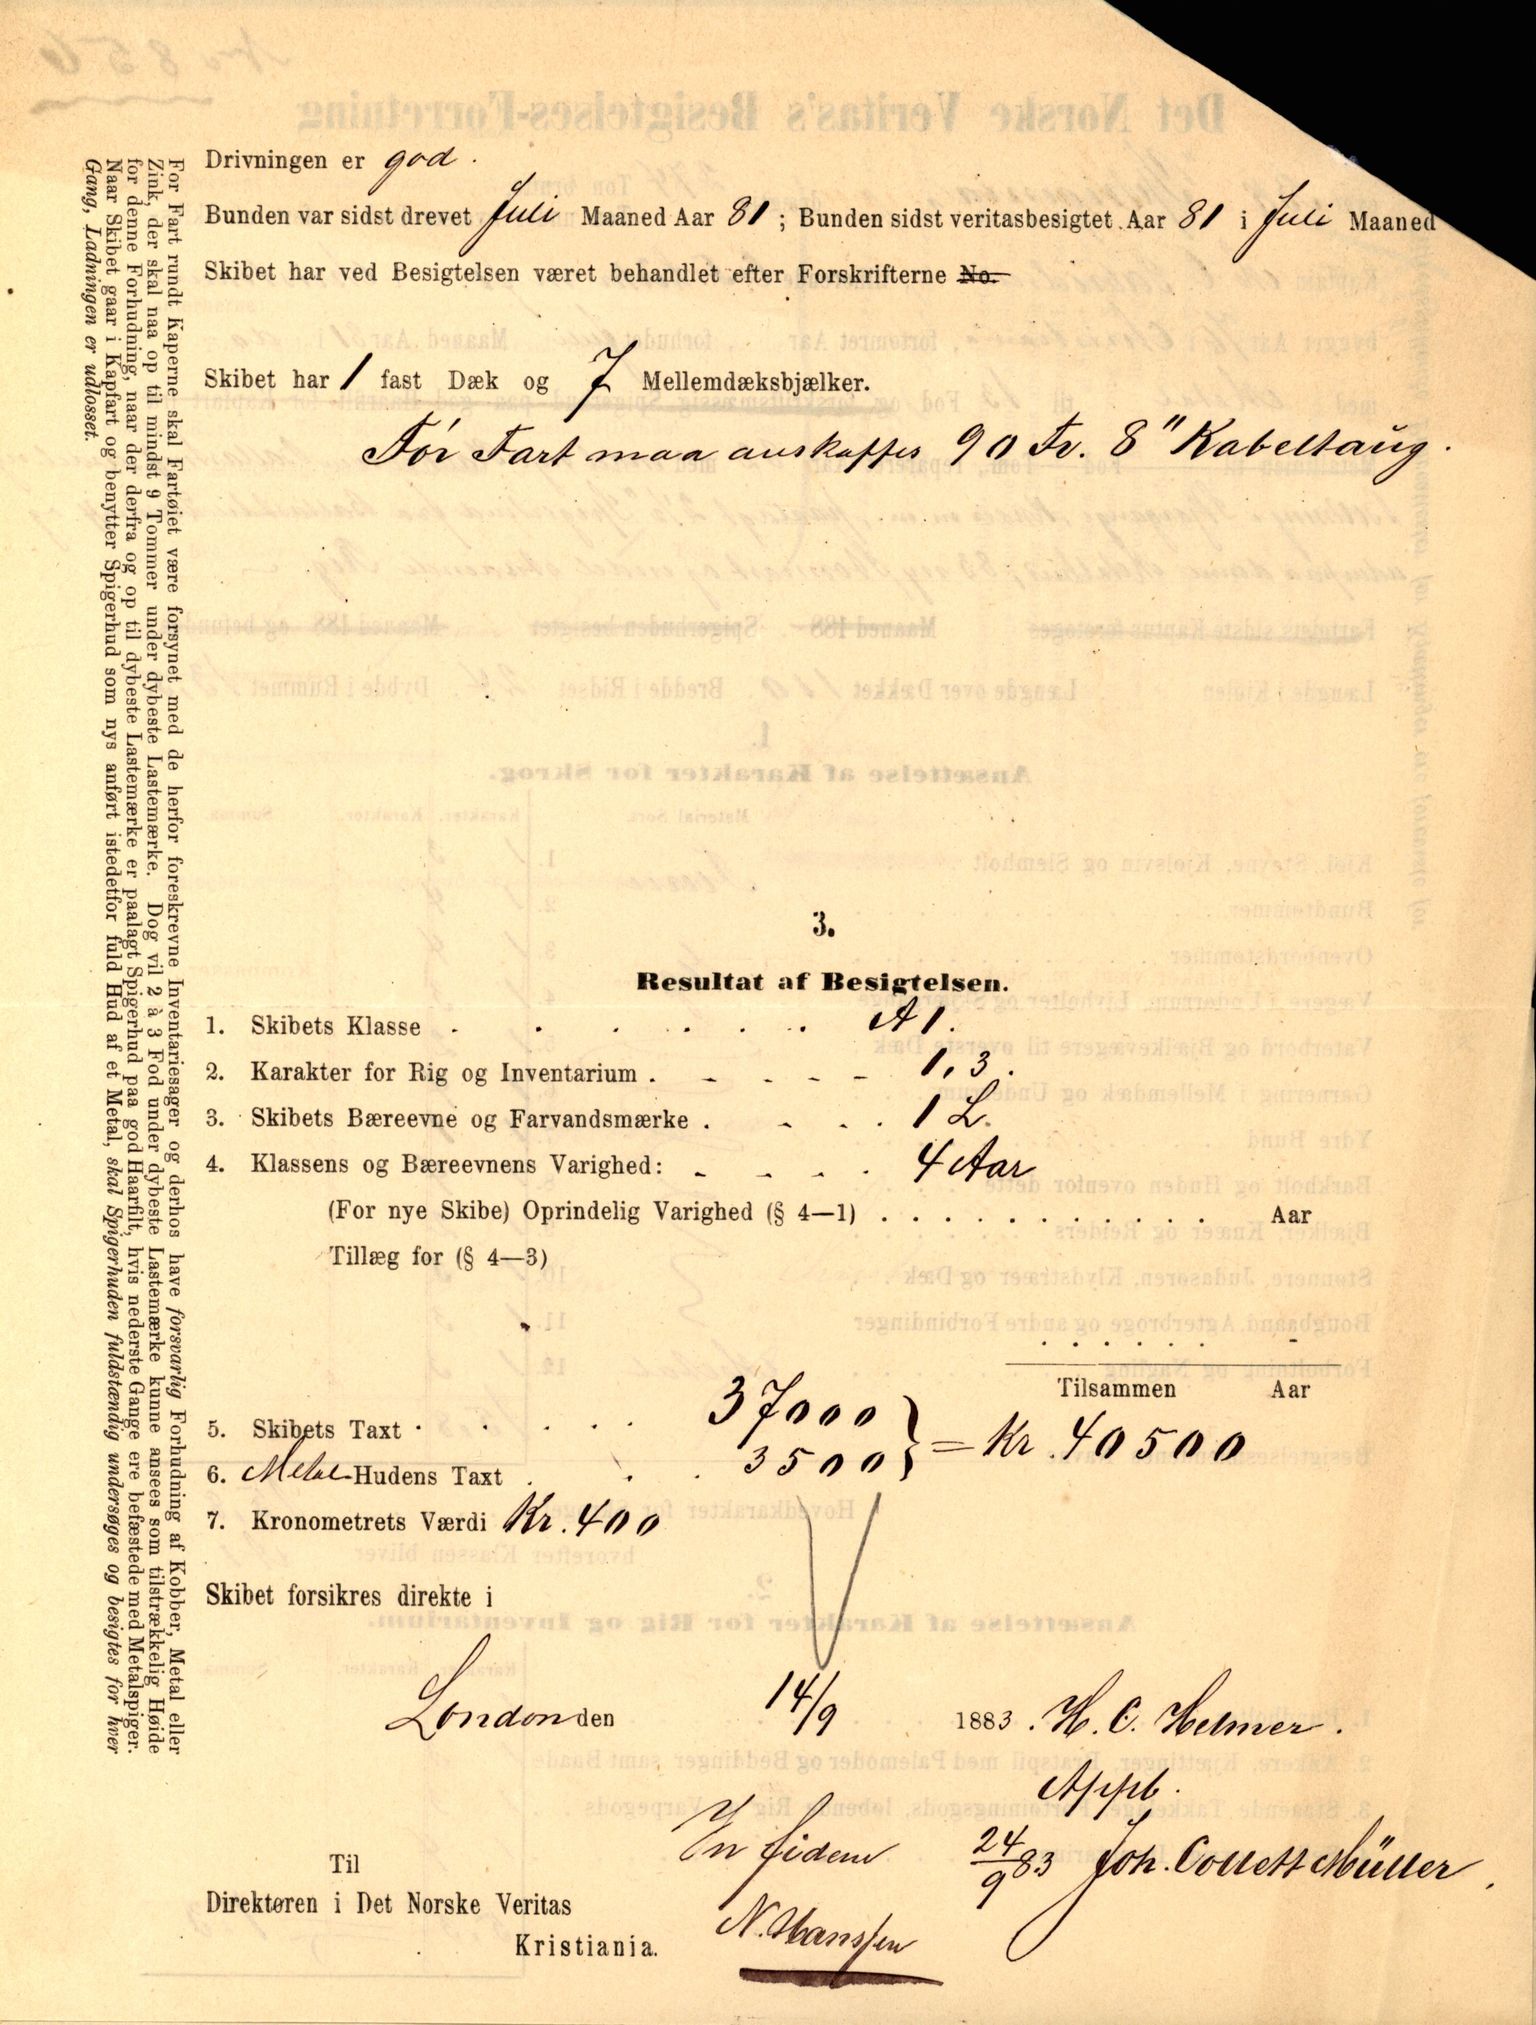 Drivningen er god.
Bunden var sidst drevet Juli Maaned Aar 81; Bunden sidst veritasbesigtet Aar 81 i Juli Maaned
Skibet har ved Besigtelsen været behandlet efter Forskrifterne No.
Skibet har 1 fast Dæk og 7 Mellemdæksbjælker.
Før Fart maa anskaffes 90 Fv. 8" Kabeltaug.
3.
Resultat af Besigtelsen.
1. Skibets Klasse . . . . . . A 1.
2. Karakter for Rig og Inventarium . . . . . 1,3.
3. Skibets Bæreevne og Farvandsmærke . . . . 1 L.
4. Klassens og Bæreevnens Varighed: . . . . 4 Aar
(For nye Skibe) Oprindelig Varighed (§ 4—1) . . . . . . . . . . . . Aar
Tillæg for (§ 4—3)
. . . . . . -
Tilsammen Aar
5. Skibets Taxt . . . . . 37000
6. Metal-Hudens Taxt . . . 3500 } = Kr. 40500
7. Kronometrets Værdi Kr. 400
Skibet forsikres direkte i
London den 14/9 1883. H. C. Helmer.
Appb.
In fidem 24/9 83 Joh. Collett Müller.
Til
Direktøren i Det Norske Veritas
Kristiania.
N. Hanssen
For Fart rundt Kaperne skal Fartøiet være forsynet med de herfor foreskrevne Inventariesager og derhos have forsvarlig Forhudning af Kobber, Metal eller
Zink, der skal naa op til mindst 9 Tommer under dybeste Lastemærke. Dog vil 2 à 3 Fod under dybeste Lastemærke kunne ansees som tilstrækkelig Høide
for denne Forhudning, naar der derfra og op til dybeste Lastemærke er paalagt Spigerhud paa god Haarfilt, hvis nederste Gange ere befæstede med Metalspiger.
Naar Skibet gaar i Kapfart og benytter Spigerhud som nys anført istedetfor fuld Hud af et Metal, skal Spigerhuden fuldstændig undersøges og besigtes for hver
Gang, Ladningen er udlosset.